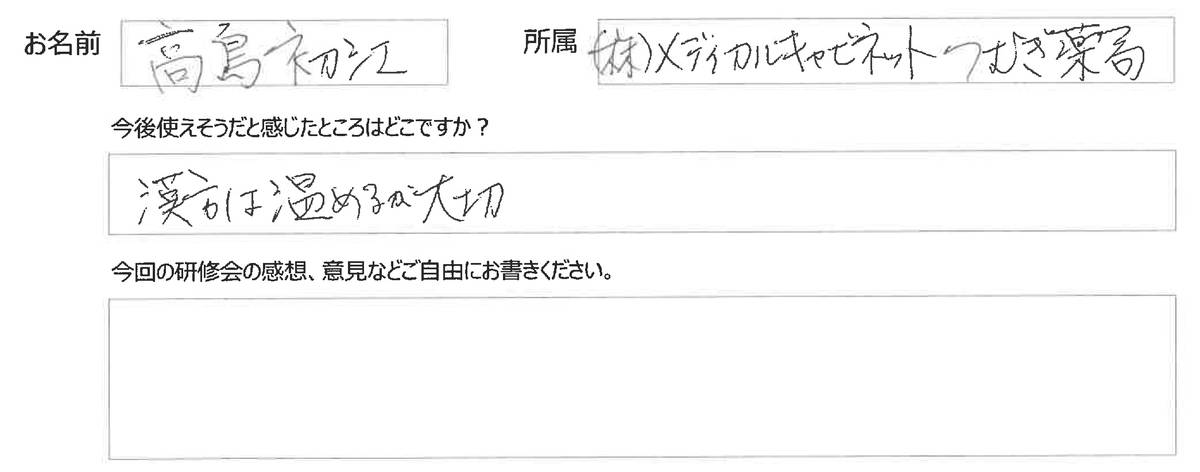 お名前 高島初江 所属 (株)メディカルキャビネット つむぎ薬局
今後使えそうだと感じたところはどこですか？
漢方は温めるが大切
今回の研修会の感想、意見などご自由にお書きください。